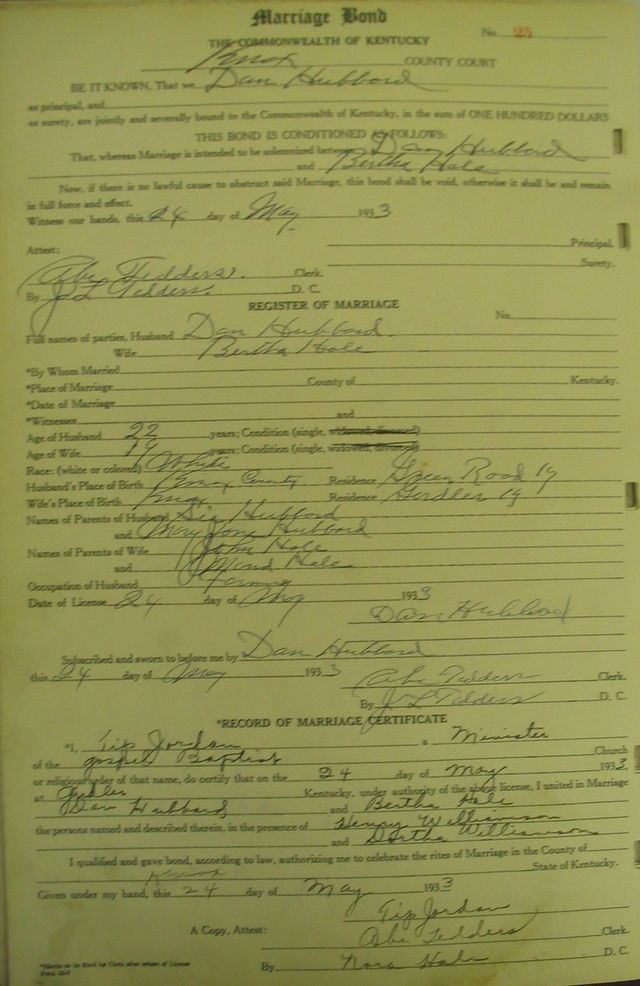 Marriage Bond
No. 25
THE COMMONWEALTH OF KENTUCKY
Knox COUNTY COURT
BE IT KNOWN, That we Dan Hubbard
as principal, and
as surety, are jointly and severally bound to the Commonwealth of Kentucky, in the sum of ONE HUNDRED DOLLARS
THIS BOND IS CONDITIONED AS FOLLOWS:
That, whereas Marriage is intended to be solemnized between Dan Hubbard
and Bertha Hale
Now, if there is no lawful cause to obstruct said Marriage, this bond shall be void, otherwise it shall be and remain
in full force and effect.
Witness our hands, this 24 day of May 1933
Principal.
Attest:
Surety.
Abe Tedders. Clerk.
By J L Tedders. D. C.
REGISTER OF MARRIAGE
No.
Full names of parties, Husband Dan Hubbard
Wife Bertha Hale
*By Whom Married
*Place of Marriage County of Kentucky.
*Date of Marriage
*Witnesses and
Age of Husband 22 years; Condition (single, widowed, divorced)
Age of Wife 19 years; Condition (single, widowed, divorced)
Race: (white or colored) White
Husband's Place of Birth Knox County Residence Green Road Ky
Wife's Place of Birth Knox Residence Girdler Ky
Names of Parents of Husband Hubbard
and Mary Jane Hubbard
Names of Parents of Wife John Hale
and Hale
Occupation of Husband Farming
Date of License 24 day of May 1933
Dan Hubbard
Subscribed and sworn to before me by Dan Hubbard
this 24 day of May 1933
Abe Tedders Clerk.
By J L Tedders D. C.
*RECORD OF MARRIAGE CERTIFICATE
*I, Tip Jordan a Minister
of the gospel Baptist Church
or religious order of that name, do certify that on the 24 day of May 1933
at Kentucky, under authority of the above license, I united in Marriage
Dan Hubbard and Bertha Hale
the persons named and described therein, in the presence of Henry Williamson
and Williamson
I qualified and gave bond, according to law, authorizing me to celebrate the rites of Marriage in the County of
Knox State of Kentucky.
Given under my hand, this 24 day of May 1933
Tip Jordan
A Copy, Attest: Abe Tedders Clerk.
By Nora Hale D. C.
*Blanks to be filled by Clerk after return of License